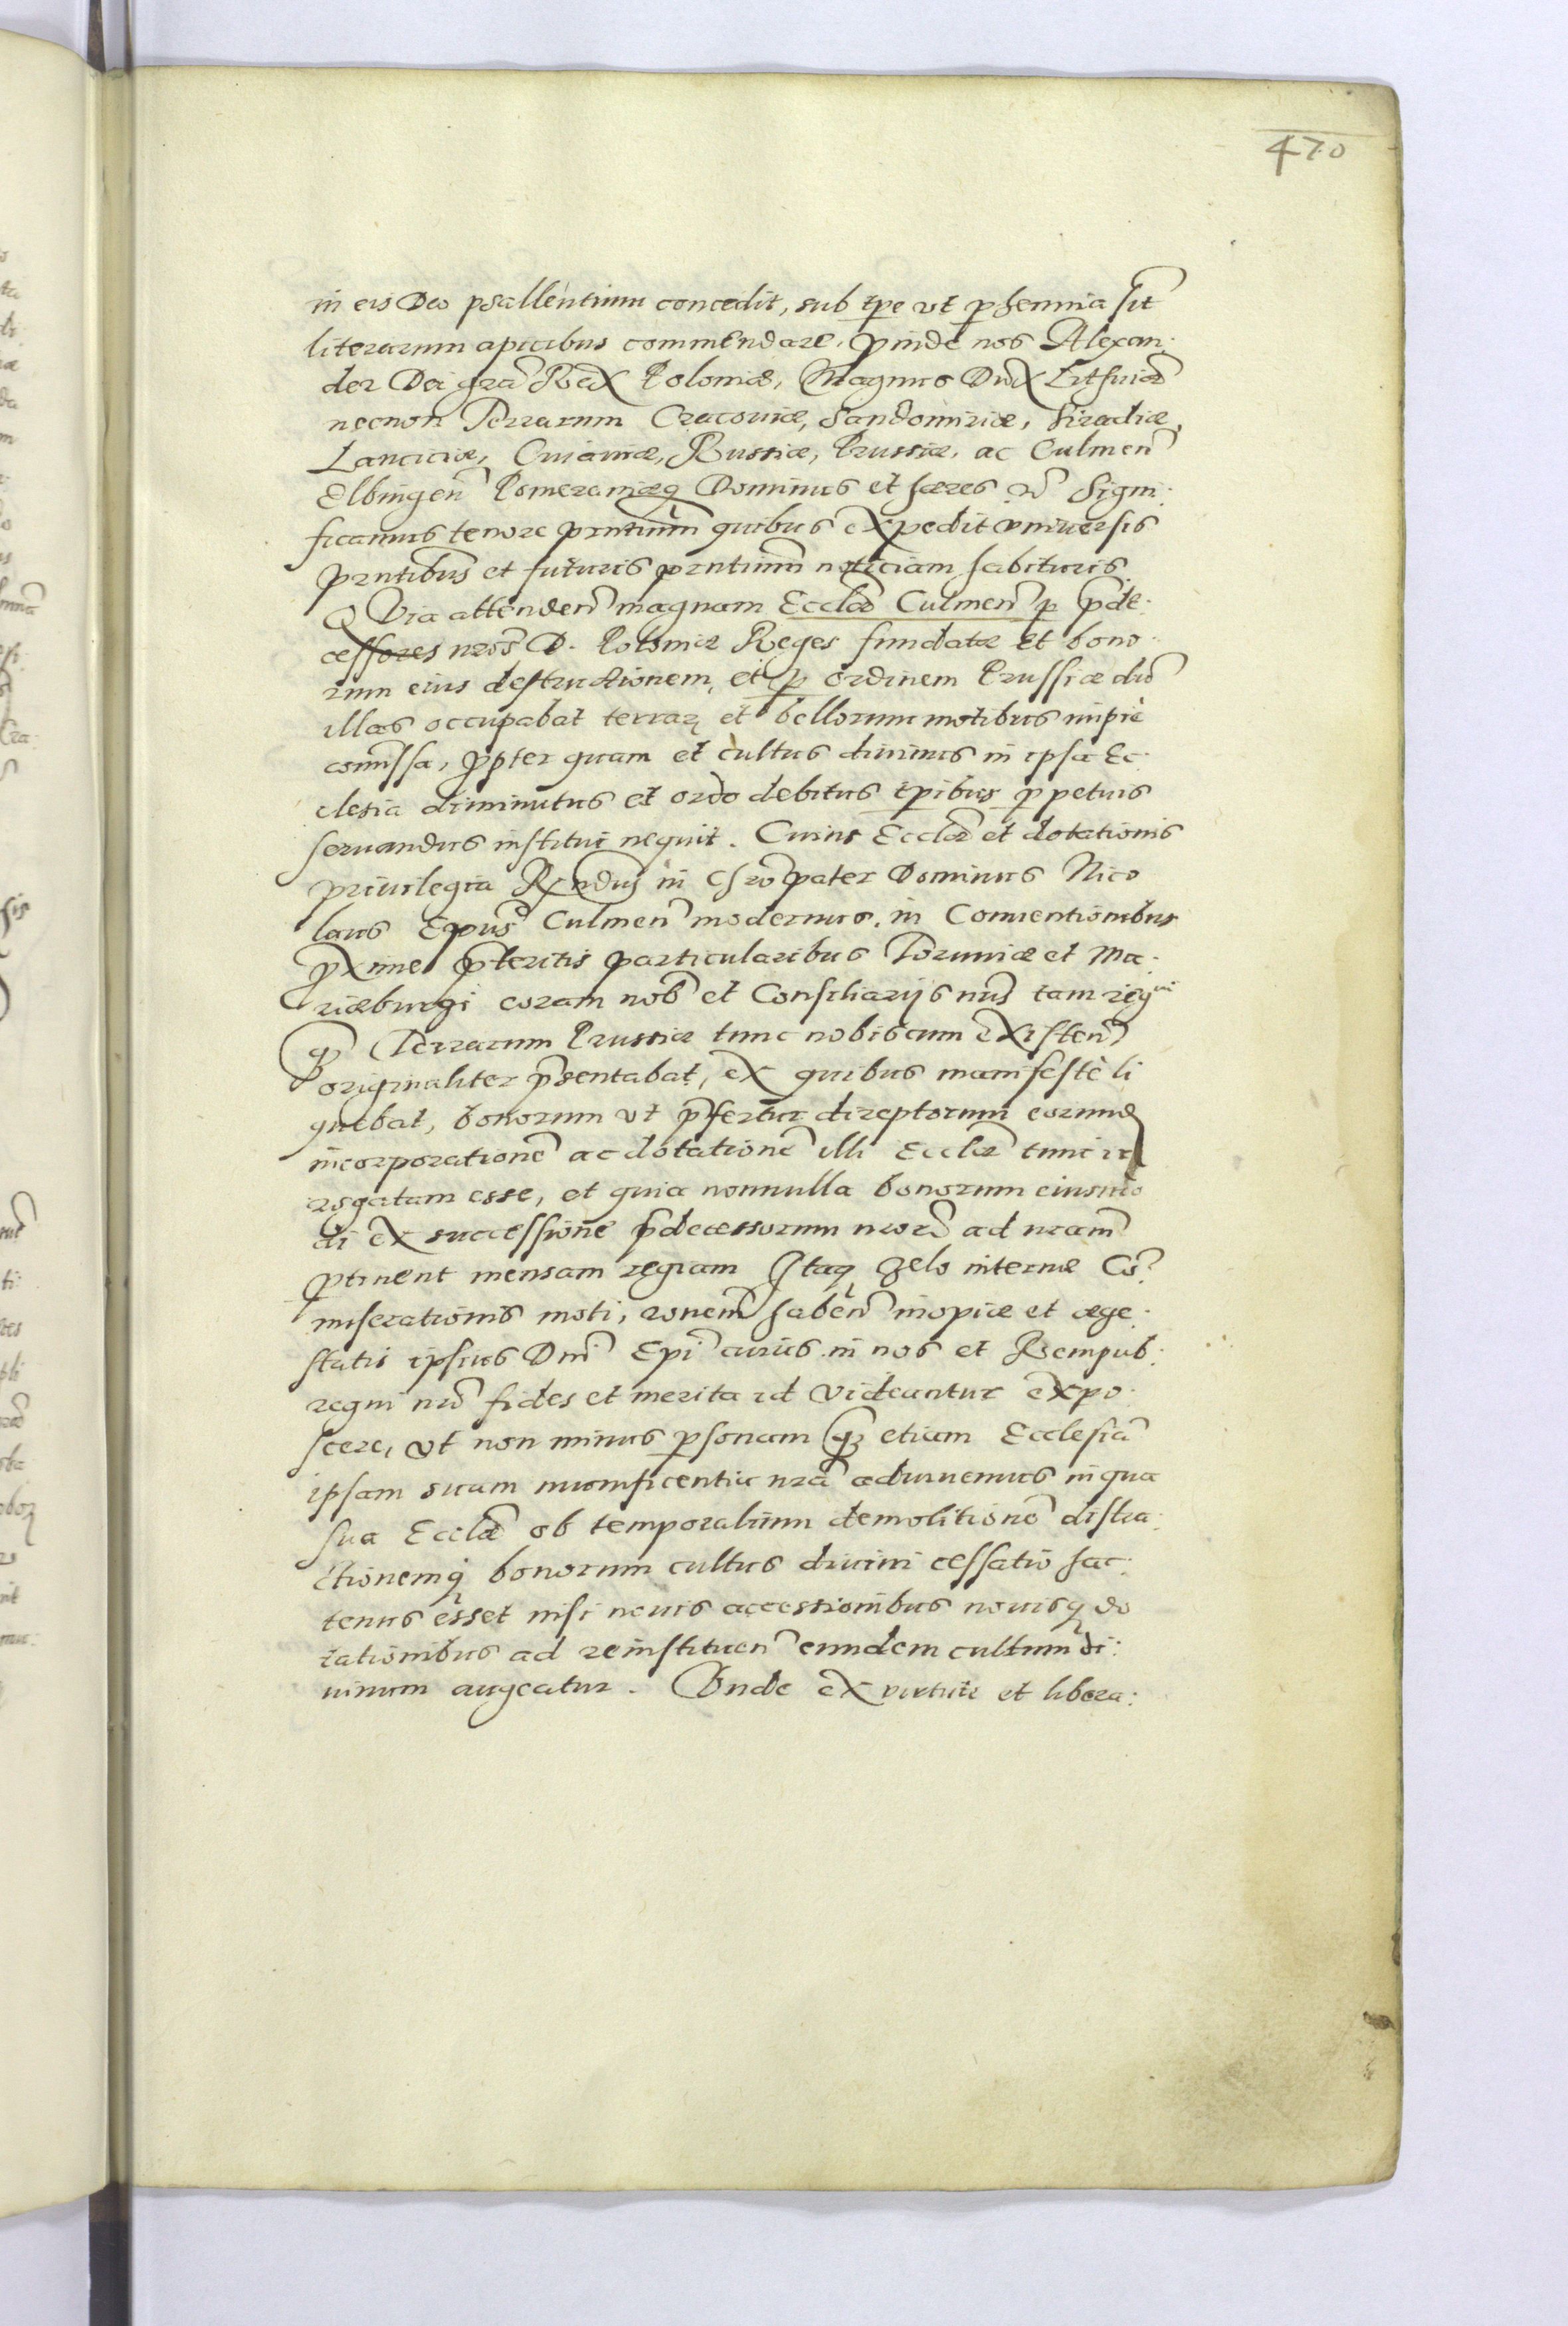 470
in eis Deo psallentium concedit, sub tpe vt phennia sit
literarum apicibus commendare, pinde nos Alexan:
der Dei gra Rex Poloniæ, Magnus Dux Lithuiæ
necnon Terrarum Cracouiæ, Sandomiriæ, Siradiæ,
Lanciciæ, Cuiauiæ, Russiæ, Prussiæ, ac Culmen
Elbingen Pomeraniæq Dominus et hæres Signi:
ficamus tenore prntium quibus expedit vniuersis
prntibus et futuris prntium noticiam habituris.
QVia attenden magnam Ecclæ Culmen p pde:
cessores nros D. Poloniæ Reges fundatæ et bono
rum eius destructionem, et p ordinem Prussiæ du
illas occupabat terras et bellorum motibus impiè
comissa, ppter quam et cultus diuinus in ipsa Ec:
clesia diminutus et ordo debitus tpibus ppetuis
seruandus institui nequit. Cuius Ecclæ et dotationis
priuilegia Rndus in Chro pater Dominus Nico
laus Epus Culmen modernus, in Conuentionibus
pxime pteritis particularibus Toruniæ et Ma:
riæburgi coram nob et Consiliarijs nris tam regni
q Terrarum Prussiæ tunc nobiscum existen
originaliter psentabat, ex quibus manifestè li
quebat, bonorum vt pfertur direptorum eorunde
incorporatione ac dotatione illi Ecclæ tunc ir
rogatam esse, et quia nonnulla bonorum eiusmo
di ex successione pdecessorum nror ad nram
ptinent mensam regiam Itaq zelo internæ Co
miserationis moti, ronem haben inopiæ et æge:
statis ipsius Dni Epi cuius in nos et Rempub:
regni nri fides et merita id videantur expo:
scere, vt non minus psonam q etiam Ecclesia
ipsam suam munificentia nra adiuuemus in qua
sua Ecclæ ob temporalium demolitione distra:
ctionemq bonorum cultus diuini cessatio hac:
tenus esset nisi nouis accessionibus nouisq do
tationibus ad reinstituen eundem cultum di:
uinum augeatur. Vnde ex virtute et libera: